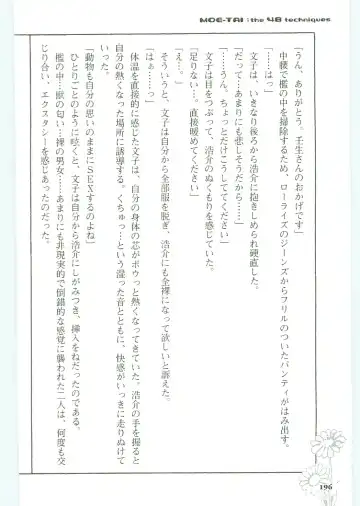 MOE-TAI :the 48 techniques
「うん、ありがとう。壬生さんのおかげです」
中腰で檻の中を掃除するため、ローライズのジーンズからフリルのついたパンティがはみ出す。
「……はっ」
文子は、いきなり後ろから浩介に抱きしめられ硬直した。
「だって…あまりにも悲しそうだから……」
「……うん。ちょっとだけこうしててください」
文子は目をつぶって、浩介のぬくもりを感じていた。
「足りない…。直接暖めてください」
「え…。」
そういうと、文子は自分から全部服を脱ぎ、浩介にも全裸になって欲しいと訴えた。
「はぁ……っ」
体温を直接的に感じた文子は、自分の身体の芯がボウっと熱くなってきていた。浩介の手を握ると
自分の熱くなった場所に誘導する。くちゅっ…という湿った音とともに、快感がいっきに走りぬけて
いった。
「動物も自分の思いのままにSEXするのよね」
ひとりごとのように呟くと、文子は自分から浩介にしがみつき、挿入をねだったのである。
檻の中…獣の匂い…裸の男女……あまりにも非現実的で倒錯的な感覚に襲われた二人は、何度も交
じり合い、エクスタシーを感じあったのだった。
196